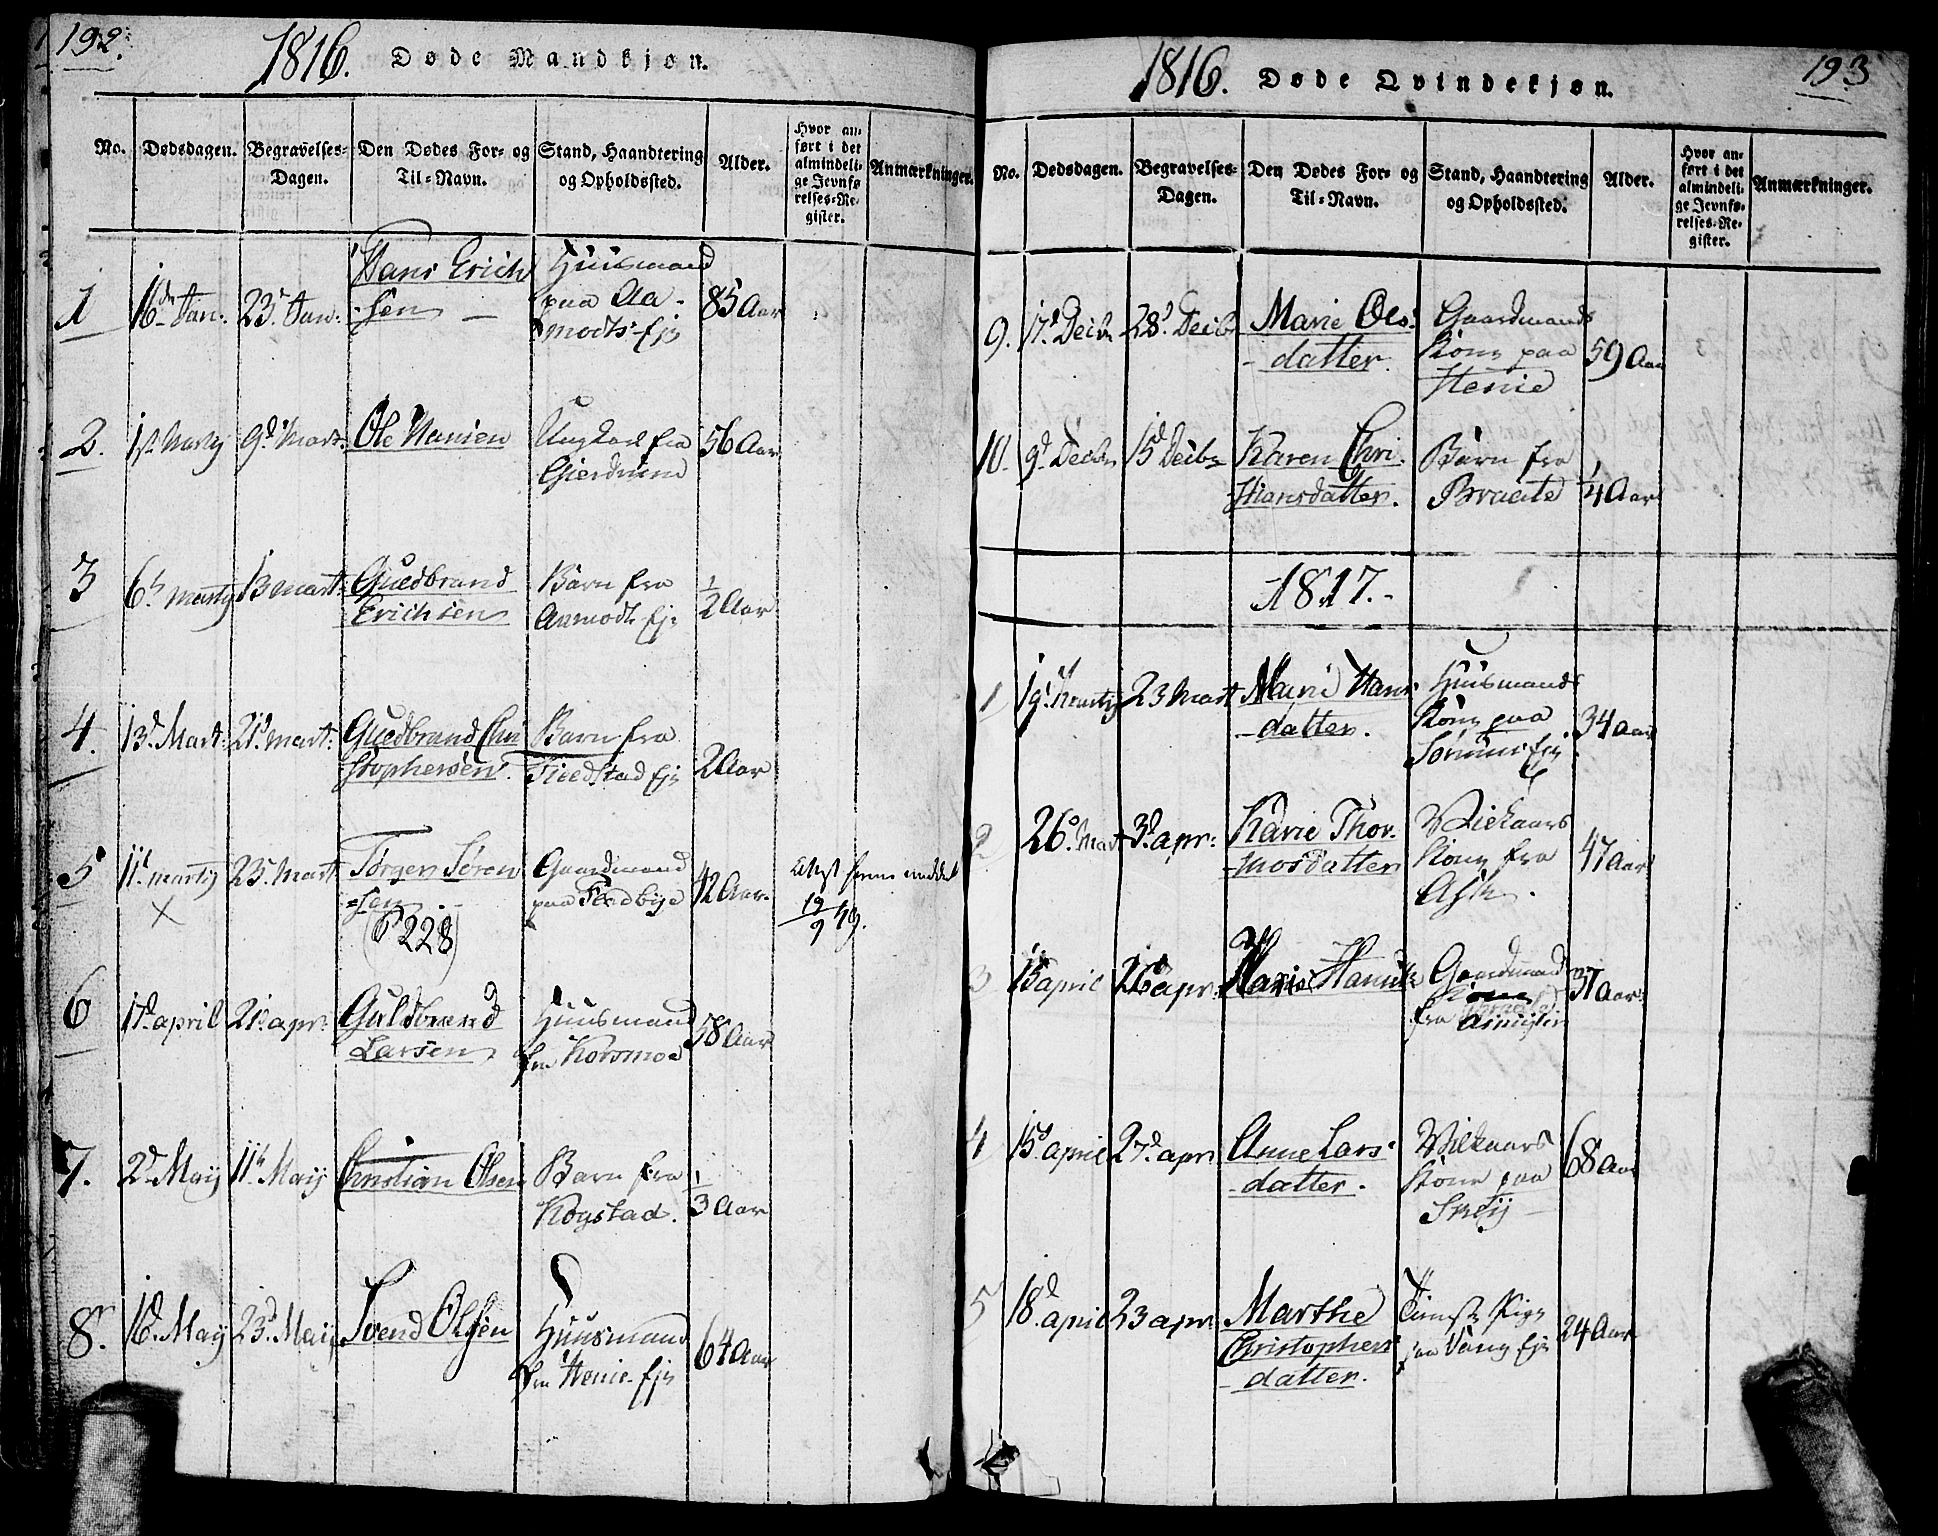 192.
1816. Døde Mandkjøn.
No. Dødsdagen. Begravelses-Dagen. Den Dødes For- og Til-Navn. Stand, Haandtering og Opholdssted. Alder. Hvor anført i det almindelige Jevnførelses-Register. Anmærkninger.
1 16de Jan. 23. Jan. Hans Erich
sen Huusmand
paa Aa-
modts-Ejx 85 Aar
2. 1st Marty 9d Mart. Ole Hansen Ungkarl fra
Gierdrum 56 Aar
3 6te Marty 13 Mart: Guedbrand
Erichsen Barn fra
Aamodt Ej: 1/2 Aar
4. 13d. Mart: 21d Mart: Guedbrand Chri
stophersen Barn fra
Tiedstad Ejx 2 Aar
5 11t Marty 23. Mart Jørgen Søren
=sen Gaardmand
paa 42 Aar.
X (P 228) Attest
19/9 49.
6 17d. april 21d. apr: Guldbrand
Larsen Huusmand
fra Korsmoe 58 Aar
7. 2d. Maij 11te Maij Christian Olsen Barn fra
Kogstad. 1/3 Aar
8. 16d. Maij 23d. Maij Svend Olsen Huusmand
fra Henie-Ejx 64 Aar
1816. Døde Qvindekjøn. 193
No. Dødsdagen. Begravelses-Dagen. Den Dødes For- og Til-Navn. Stand, Haandtering og Opholdssted. Alder. Hvor anført i det almindelige Jevnførelses-Register. Anmærkninger.
9. 17d Decbr 28d Decbr Marie Ols-
datter. Gaardmands
Kone paa
Henie 59 Aar
10. 9d Decbr 15d Decbr Karen Chri-
stiansdatter. Barn fra
Braaete 1/4 Aar
1817.
1 19d. Martij 23 Mart Marie Hans-
datter. Huusmands
Kone paa
Sørum Ejx 34 Aar
2 26d. Mart 3d. apr: Karie Thor-
mosdatter Vilkaars
Kone fra
Ask. 47 Aar
3 15 april 26d apr: Marie Hansdtr Gaardmand
Kone
fra 37 Aar.
4 15d. april 27d. apr. Anne Lars-
datter. Vilkaars
Kone paa
Smeij 68 Aar
5 18d. april 23 apr. Marthe
Christophers
datter. Tieneste Pige
paa Vang Ejx 24 Aar